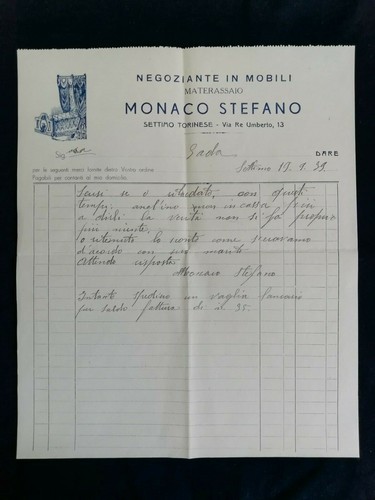 NEGOZIANTE IN MOBILI
MATERASSAIO
MONACO STEFANO
SETTIMO TORINESE - Via Re Umberto, 13
Sig.
Gada
DARE
per le seguenti merci fornite dietro Vostro ordine.
Pagabili per contanti al mio domicilio.
Settimo 19.9.39
Scusi se o ritardato, con questi
tempi; anch'ino non in cassa,
a dirli la verità non si fa proprio
più niente.
o ritenuto lo sconto come
d'acordo con suo marito
Attendo risposta
Monaco Stefano
Intanto spedisco un vaglia bancario
per saldo fattura di il 35.